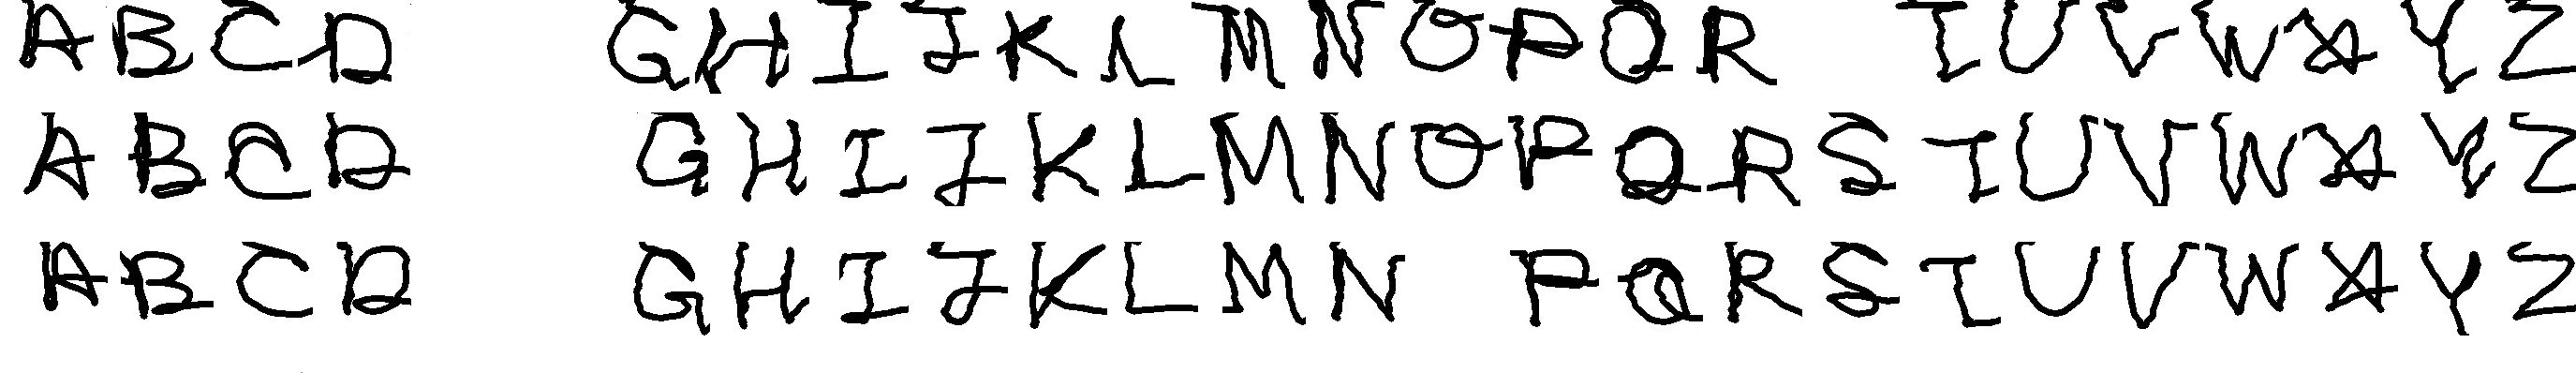 A B C D G H I J K L M N O P Q R T U V W X Y Z
A B C D G H I J K L M N O P Q R S T U V W X Y Z
A B C D G H I J K L M N P Q R S T U V W X Y Z